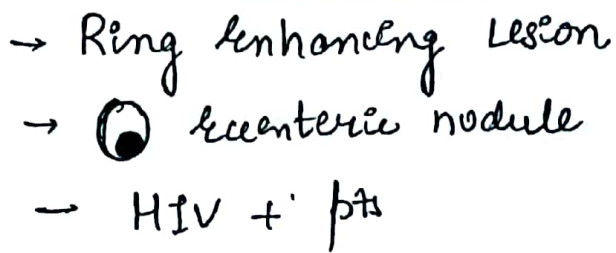 → Ring enhancing Lesion
→ eccenteric nodule
- HIV + pts